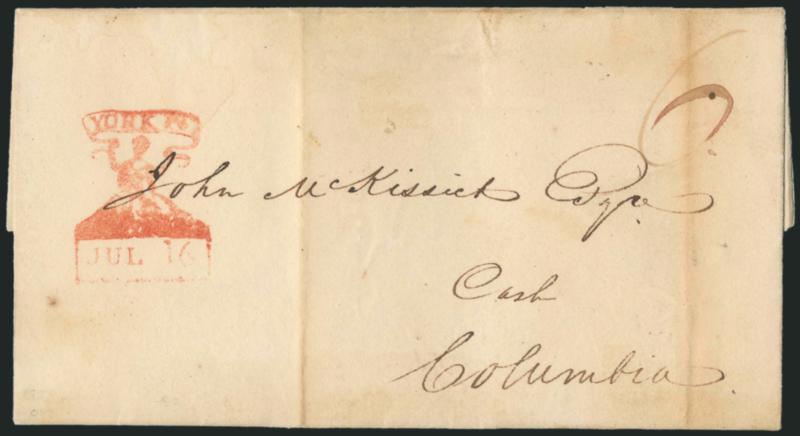 YORK Pa
JUL 16
6
John McKissick Esqr
Cash
Columbia